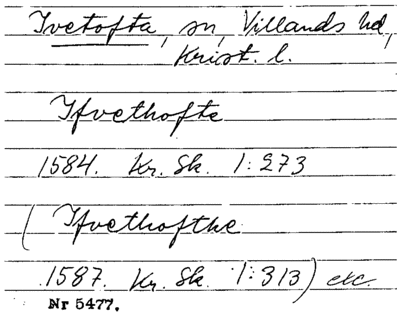 Ivetofta, sn, Villands hd,
Krist. l.
Ifvethofte
1584. Kr. Sk. 1:273
(Ifvethofthe
1587. Kr. Sk. 1:313) etc.
Nr 5477.